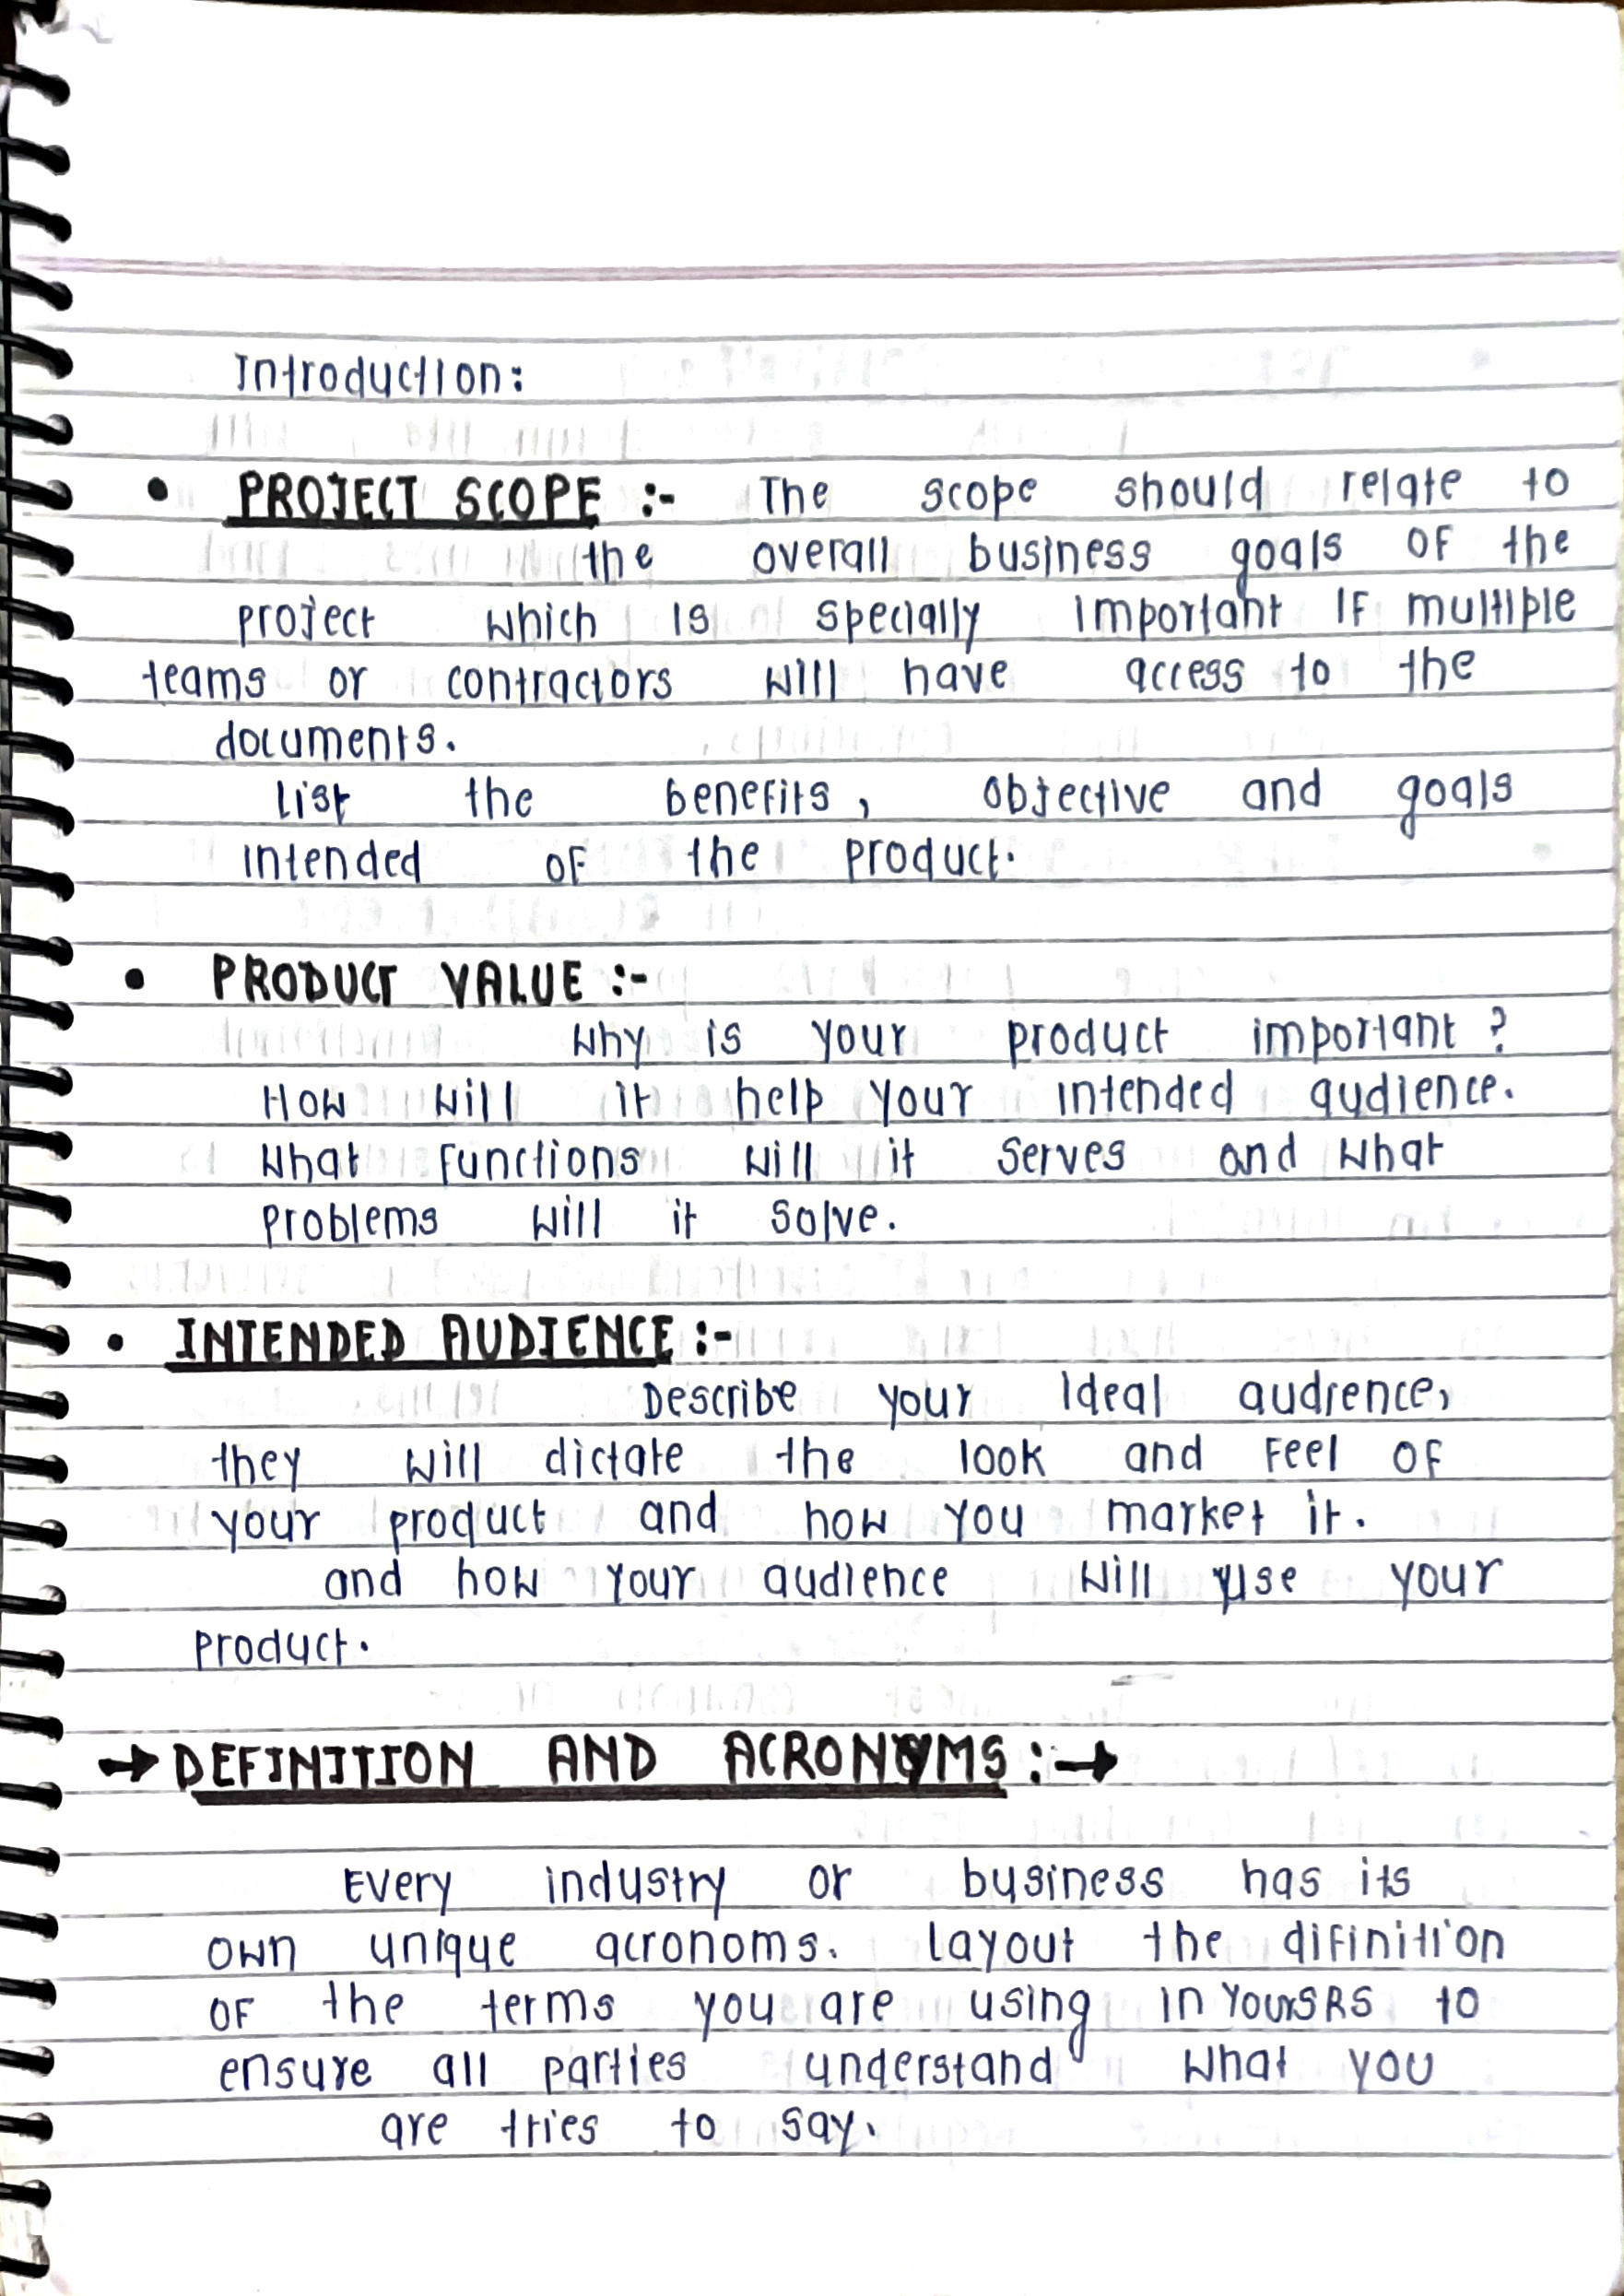 Introduction:
• PROJECT SCOPE :- The scope should relate to
the overall business goals of the
project which is specially important if multiple
teams or contractors will have access to the
documents.
List the benefits, objective and goals
intended of the product.
• PRODUCT VALUE :-
Why is your product important?
How will it help your intended audience.
What functions will it serves and what
problems will it solve.
• INTENDED AUDIENCE :-
Describe your Ideal audience,
they will dictate the look and Feel of
your product and how you market it.
and how your audience will use your
product.
→ DEFINITION AND ACRONYMS :→
Every industry or business has its
own unique acronoms. Layout the difinition
of the terms you are using in your SRS to
ensure all parties understand what you
are tries to say.